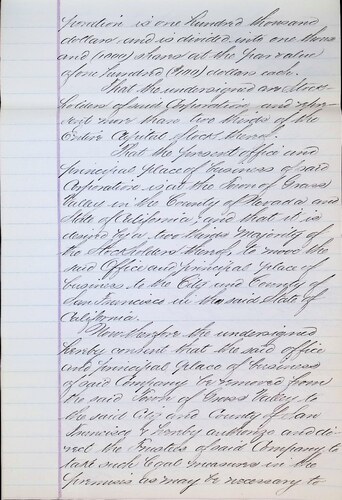 poration is one hundred thousand
dollars and is divided into one thous
and (1000) shares at the par value
of one hundred (100) dollars each.
That the undersigned are Stock
holders of said Corporation and rep
resent more than two thirds of the
Entire Capital Stock thereof.
That the present office and
principal place of business of said
Corporation is at the Town of Grass
Valley in the County of Nevada and
State of California, and that it is
desired by a two thirds majority of
the Stockholders thereof, to move the
said Office and principal place of
business to the City and County of
San Francisco in the said State of
California.
Now therefore the undersigned
hereby consent that the said office
and principal place of business
of said Company be removed from
the said Town of Grass Valley to
the said City and County of San
Francisco & hereby authorize and di
rect the Trustees of said Company to
take such legal measures in the
premises as may be necessary to